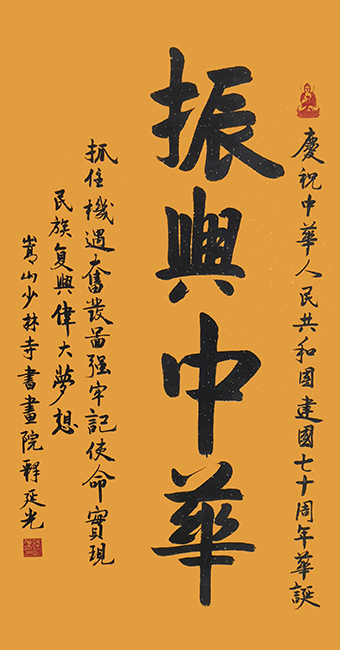 慶祝中華人民共和國建國七十周年華誕
振興中華
抓住機遇奮發圖强牢記使命實現
民族复興偉大夢想
嵩山少林寺書畫院釋延光